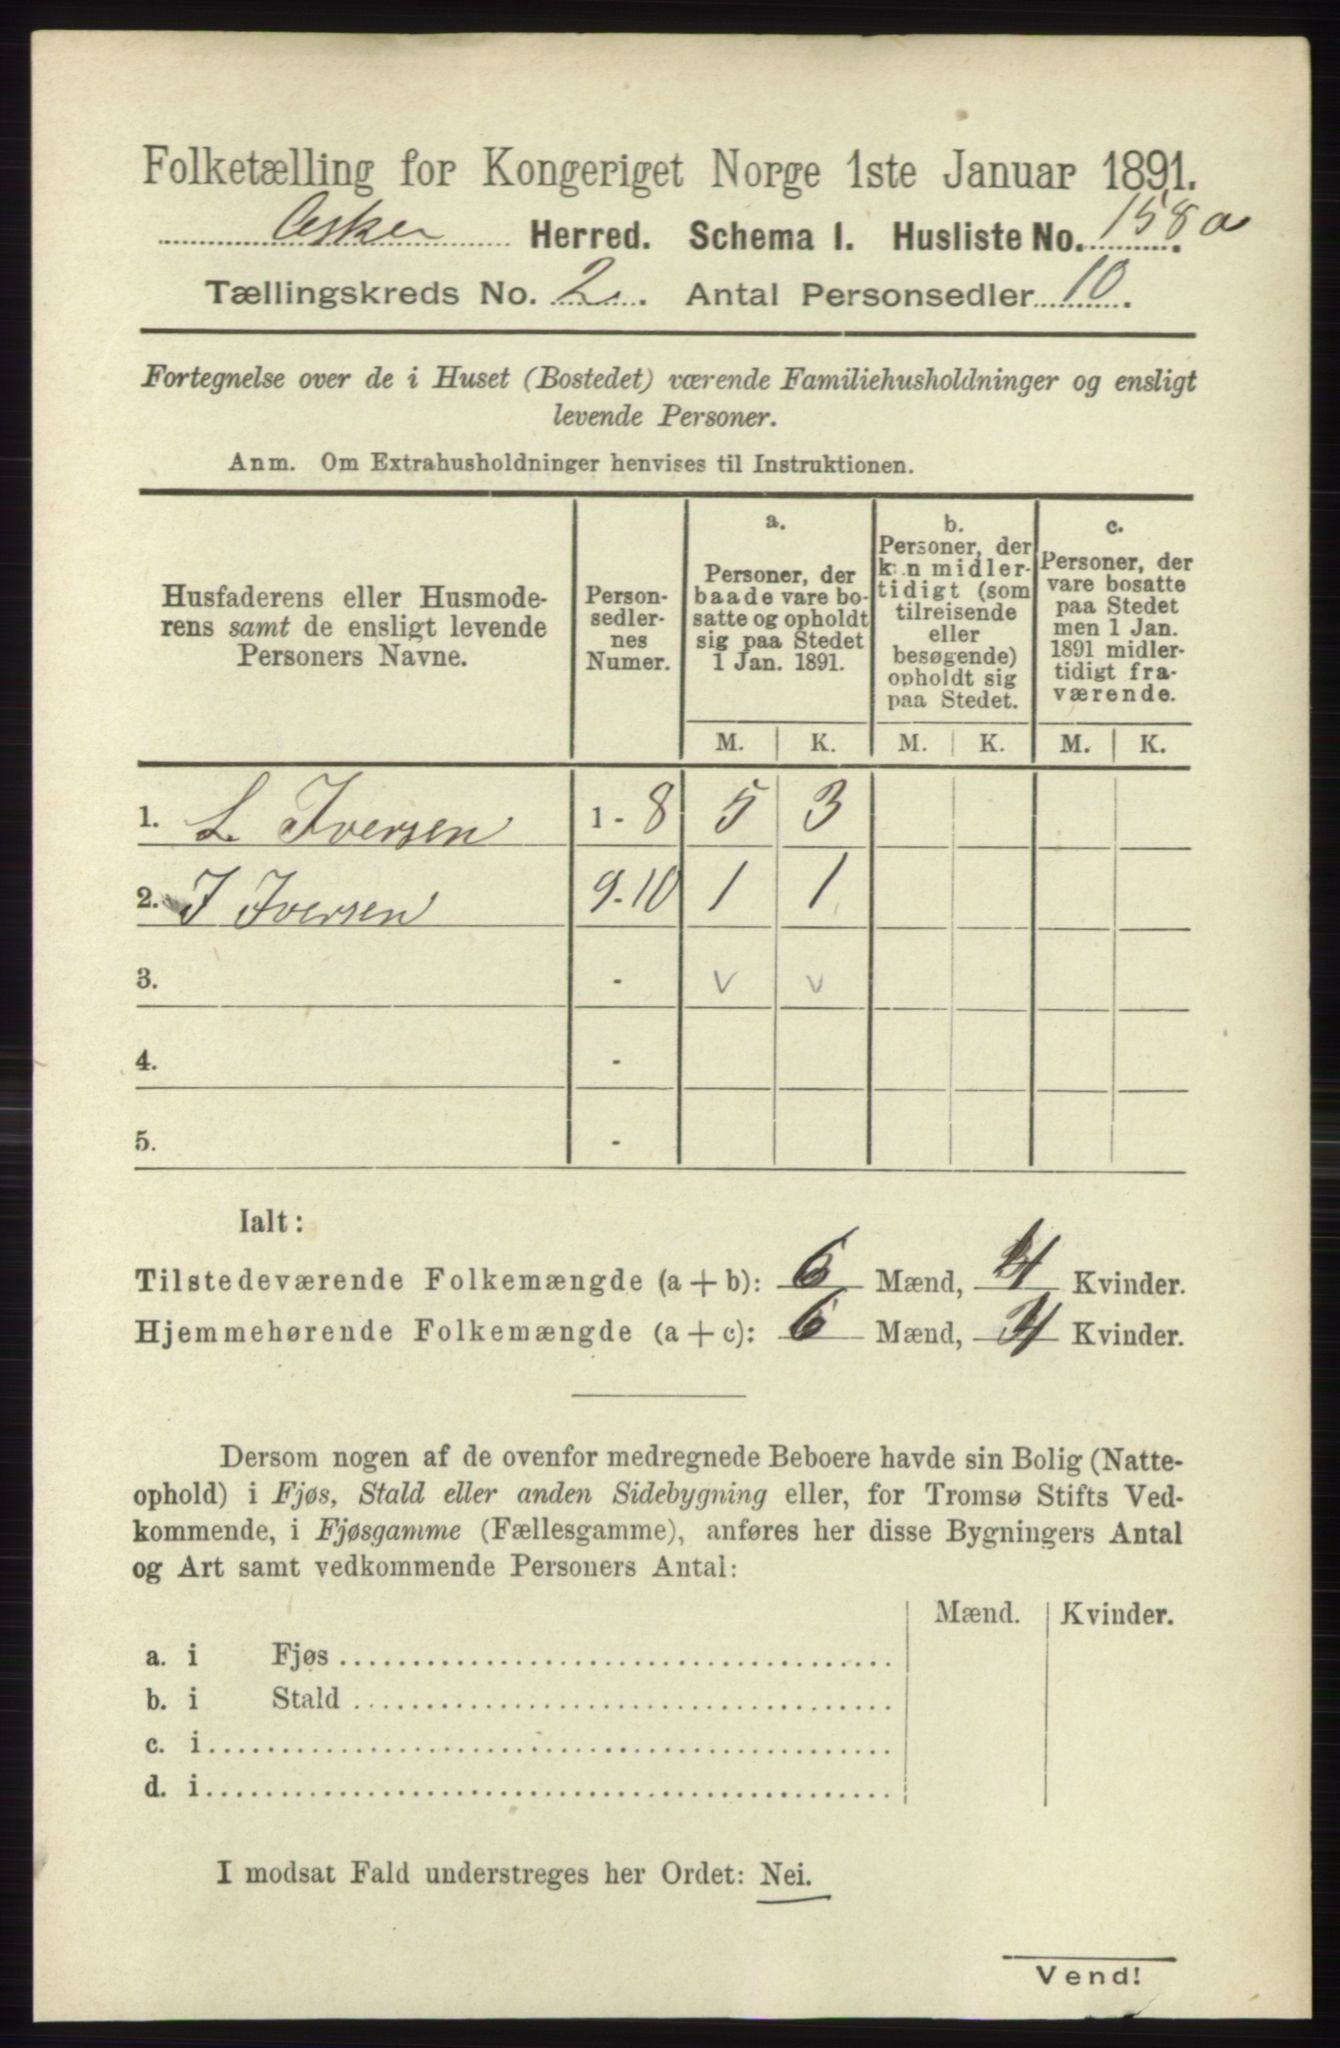 Folketælling for Kongeriget Norge 1ste Januar 1891.
Asker Herred. Schema I. Husliste No. 158 a
Tællingskreds No. 2. Antal Personsedler 10.
Fortegnelse over de i Huset (Bostedet) værende Familiehusholdninger og ensligt
levende Personer.
Anm. Om Extrahusholdninger henvises til Instruktionen.
Husfaderens eller Husmode-
rens samt de ensligt levende
Personers Navne.
Person-
sedler-
nes
Numer.
a.
Personer, der
baade vare bo-
satte og opholdt
sig paa Stedet
1 Jan. 1891.
b.
Personer, der
kun midler-
tidigt (som
tilreisende
eller
besøgende)
opholdt sig
paa Stedet.
c.
Personer, der
vare bosatte
paa Stedet
men 1 Jan.
1891 midler-
tidigt fra-
værende.
M. K. M. K. M. K.
1. L. Iversen 1 - 8 5 3
2. I Iversen 9-10 1 1
3. - v v
4. -
5. -
Ialt:
Tilstedeværende Folkemængde (a + b): 6 Mænd, 4 Kvinder.
Hjemmehørende Folkemængde (a + c): 6 Mænd, 4 Kvinder.
Dersom nogen af de ovenfor medregnede Beboere havde sin Bolig (Natte-
ophold) i Fjøs, Stald eller anden Sidebygning eller, for Tromsø Stifts Ved-
kommende, i Fjøsgamme (Fællesgamme), anføres her disse Bygningers Antal
og Art samt vedkommende Personers Antal:
Mænd. Kvinder.
a. i Fjøs
b. i Stald
c. i
d. i
I modsat Fald understreges her Ordet: Nei.
Vend!